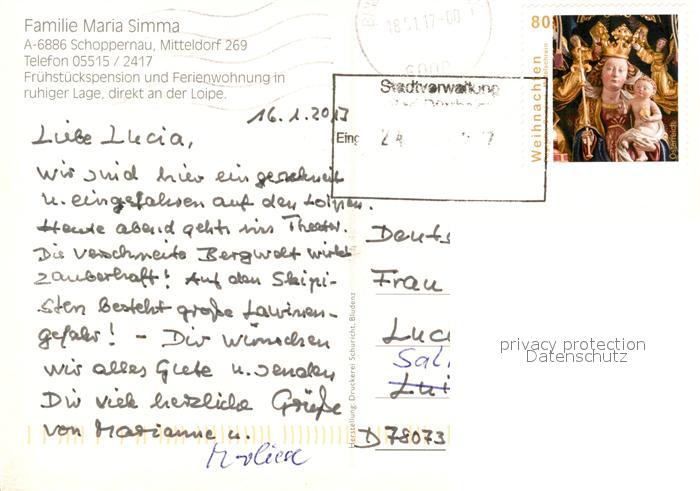 Familie Maria Simma
A-6886 Schoppernau, Mitteldorf 269
Telefon 05515 / 2417
Frühstückspension und Ferienwohnung in
ruhiger Lage, direkt an der Loipe.
18.01.17-00
6000
80
Weihnachten
Österreich
Stadtverwaltung
Eing
24
16.1.2017
Liebe Lucia,
Wir sind hier eingeschneit
u. eingefahren auf den Loipen.
Heute abend gehts ins Theater.
Die verschneite Bergwelt wirkt
zauberhaft! Auf den Skipi-
sten besteht große Lawinen-
gefahr! - Dir wünschen
wir alles Gute u. senden
Dir viele herzliche Grüße
von Marianne u.
Herstellung: Druckerei Schuricht, Bludenz
Deuts
Frau
Luci
Sal.
D 78073
privacy protection
Datenschutz